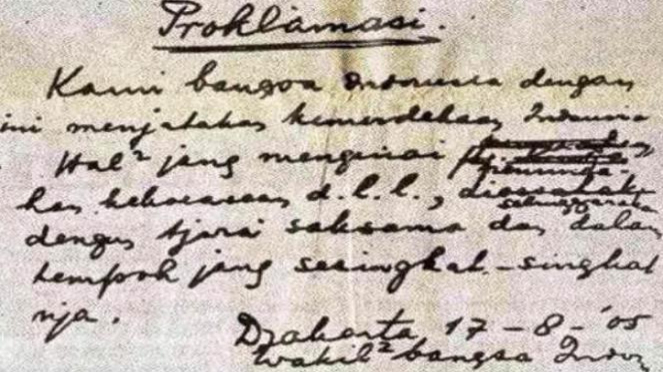 Proklamasi.
Kami bangsa Indonesia dengan
ini menjatakan kemerdekaan Indonesia
Hal² jang mengenai
kekoeasaan d.l.l.,
dengan tjara saksama dan dalam
tempoh jang sesingkat-singkat
nja.
Djakarta 17 - 8 - '05
Wakil² bangsa Indon